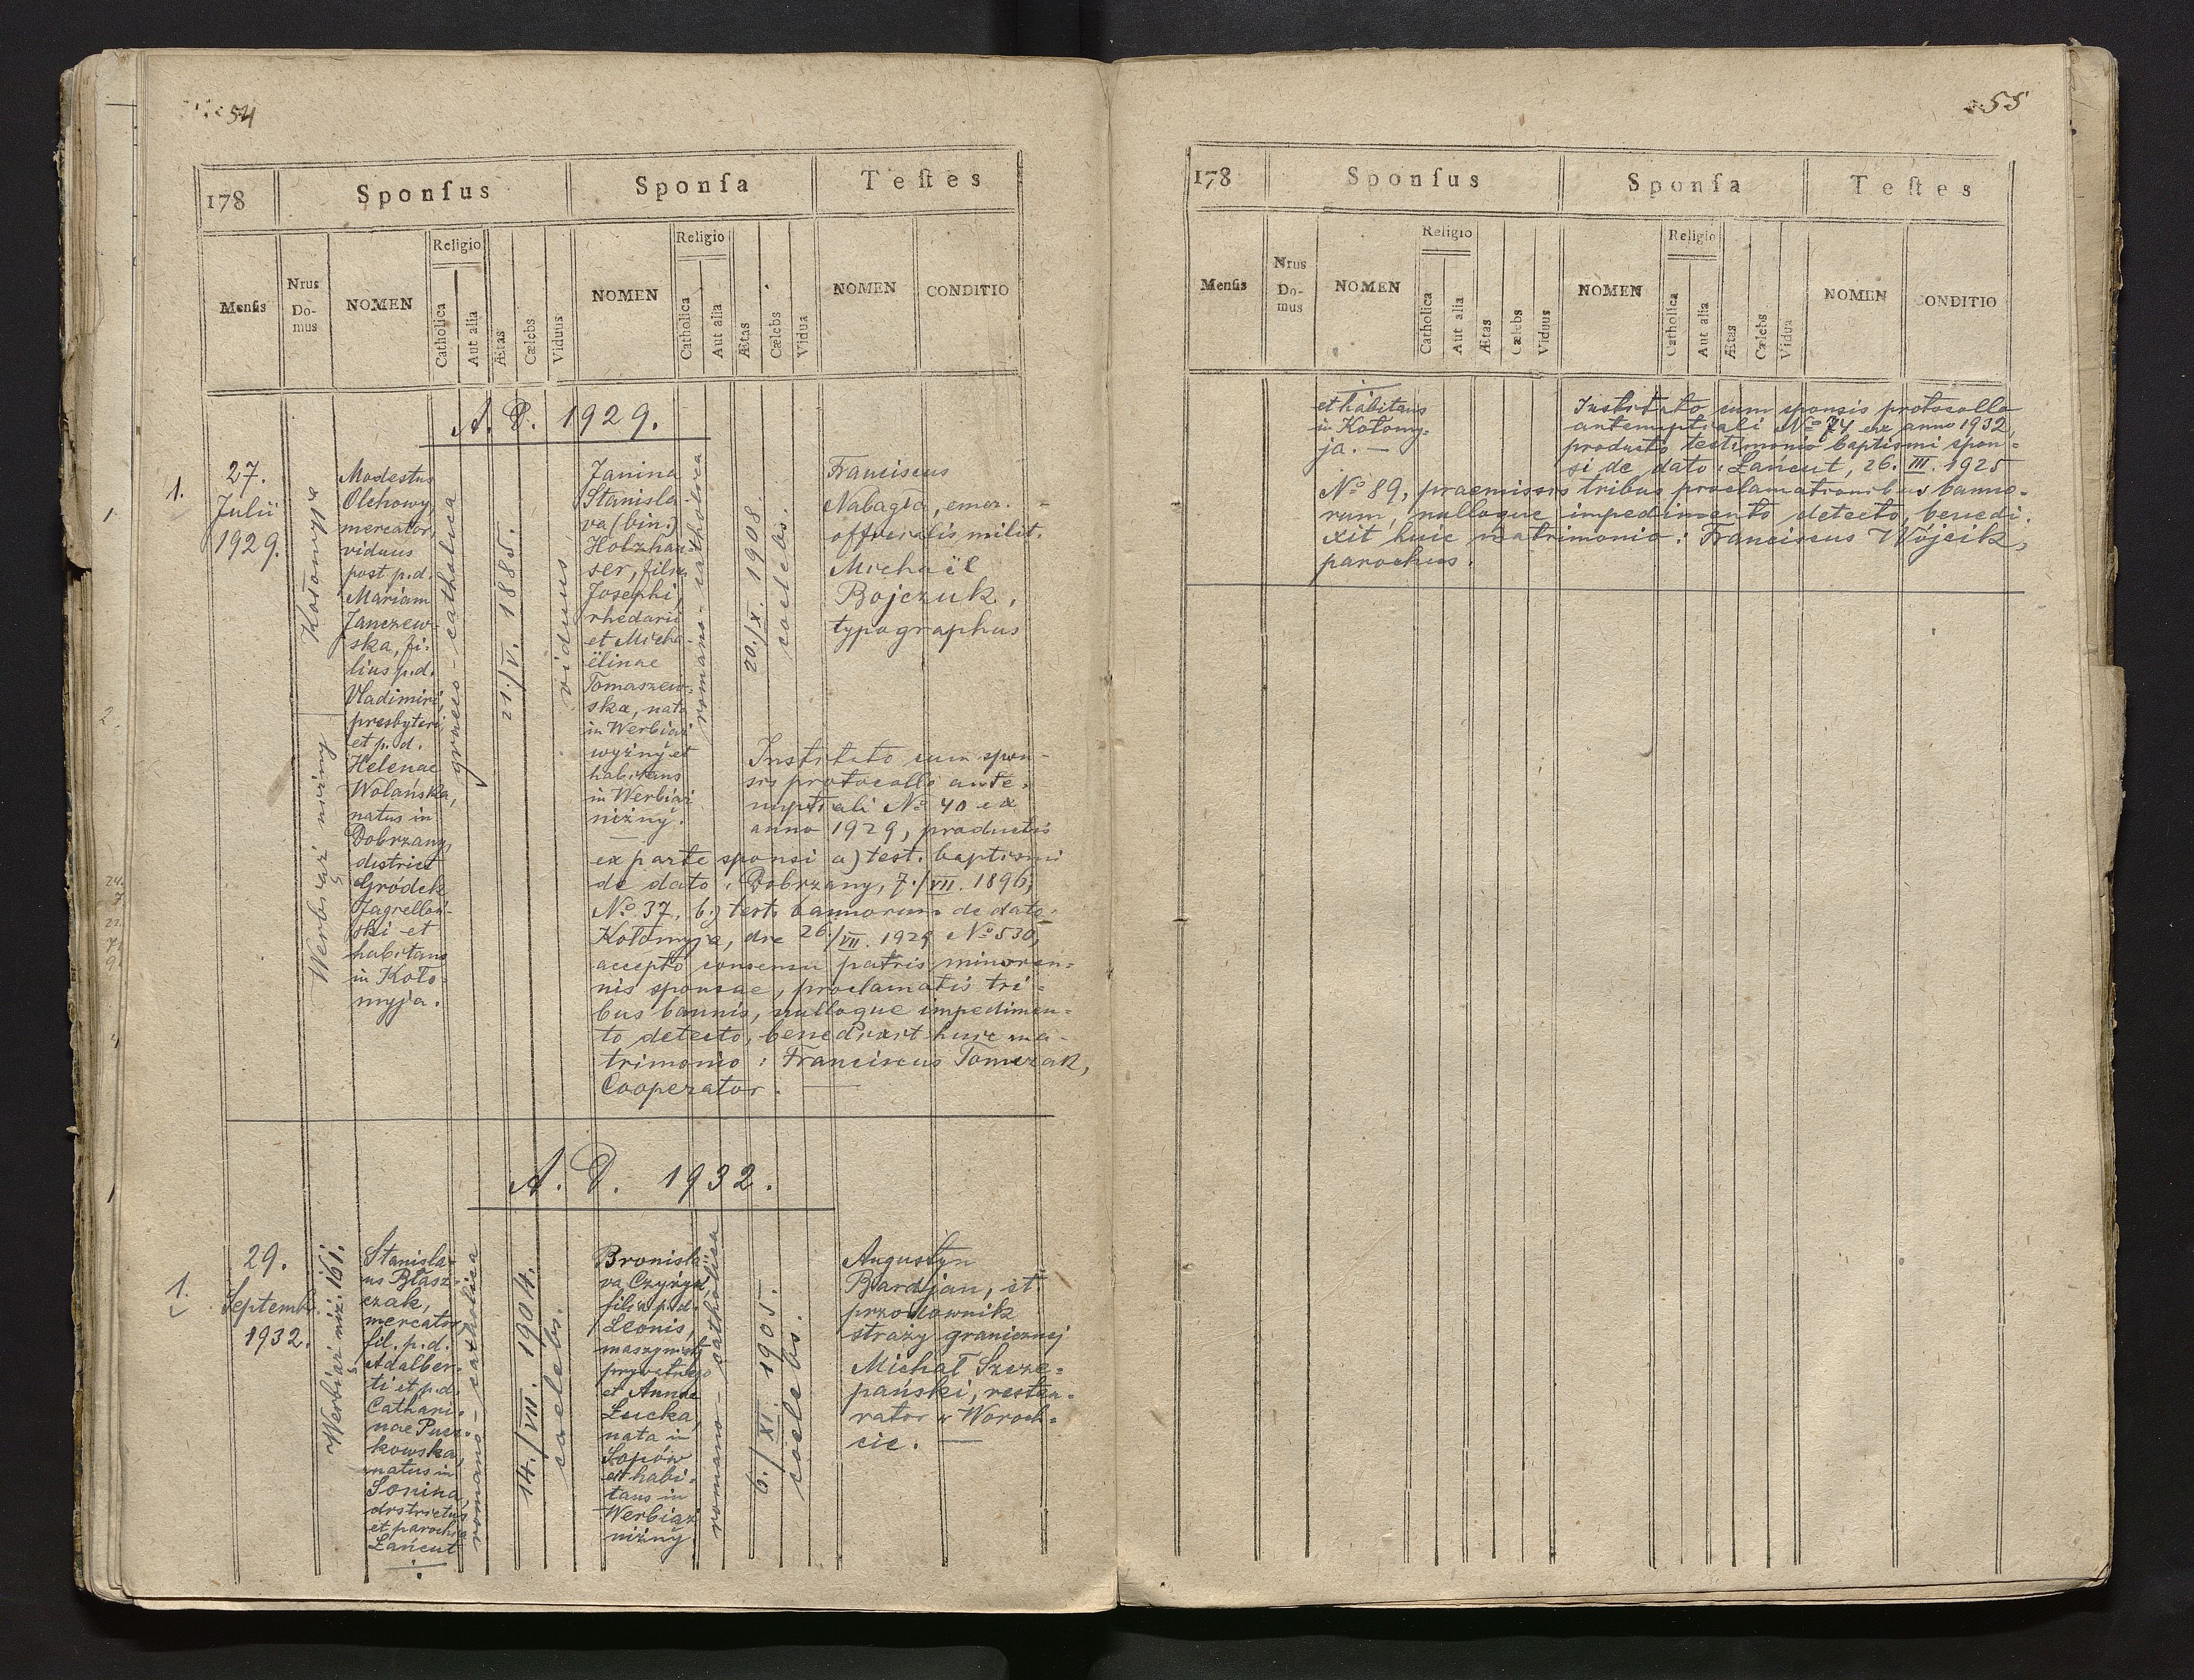 54
178
Sponſus
Sponſa
Teſtes
Menſis
Nrus Do-mus
NOMEN
Religio
Catholica
Aut alia
Ætas
Cælebs
Viduus
NOMEN
Religio
Catholica
Aut alia
Ætas
Cælebs
Vidua
NOMEN
CONDITIO
A. D. 1929.
1.
27.
Julii
1929.
Kołomyja
Werbiąż niżny
Modestus
Olchowy
mercator,
viduus
post p.d.
Mariam
Janczew-
ska, fi-
lius p.d.
Vladimiri,
presbyteri
et p.d.
Helenae
Wolańska,
natus in
Dobrzany,
district
Gródek
Jagielloń-
ski et
habitans
in Koło-
myja.
graeco-catholica
21./V. 1885.
viduus
Janina
Stanisla-
va (bin.)
Holzhau-
ser, filia
Josephi,
rhedarii
et Micha-
ëlinae
Tomaszew-
ska, nata
in Werbiąż
wyżny et
habitans
in Werbiąż
niżny.
romano-catholica
20./X. 1908.
coelebs.
Franciscus
Nabagło, emer.
officialis milit.
Michaël
Bojczuk,
typographus
Instituto cum spon-
sis protocollo ante-
nuptiali No 40 ex
anno 1929, productis
ex parte sponsi a) test. baptismi
de dato: Dobrzany, 7./VII. 1896,
No 37, b.) test. bannorum de dato
Kołomyja, die 26./VII. 1929 No 530,
accepto consensu patris minoren-
nis sponsae, proclamatis tri-
bus bannis, nulloque impedimen-
to detecto, benedixit huic ma-
trimonio: Franciscus Tomczak,
Cooperator.
A. D. 1932.
1.
29.
Septemb.
1932.
Werbiąż niż. 161.
Stanisla-
us Błasz-
czak,
mercator,
fil. p.d.
Adalber-
ti et p.d.
Cathari-
nae Pucz-
kowska,
natus in
Sonina,
districtus
et parochia
Łańcut
romano-catholica
14./VII. 1904.
coelebs.
Bronisla-
va
filia p.d.
Leonis,
maszynisty
prywatnego
et Annae
Łucka,
nata in
Sopów
et habi-
tans in
Werbiąż
niżny.
romano-catholica
6./XI. 1905.
coelebs.
Augustyn
Bardjan, st.
przodownik
straży granicznej
Michał Szcze-
pański, restau-
rator w Woroch-
cie.
55
178
Sponſus
Sponſa
Teſtes
Menſis
Nrus Do-mus
NOMEN
Religio
Catholica
Aut alia
Ætas
Cælebs
Viduus
NOMEN
Religio
Catholica
Aut alia
Ætas
Cælebs
Vidua
NOMEN
CONDITIO
et habitans
in Kołomy-
ja.
Instituto cum sponsis protocollo
antenuptiali No 74 ex anno 1932,
producto testimonio baptismi spon-
si de dato: Łańcut, 26. III. 1925
No 89, praemissis tribus proclamationibus banno-
rum, nulloque impedimento detecto, benedi-
xit huic matrimonio: Franciscus Wójcik,
parochus.